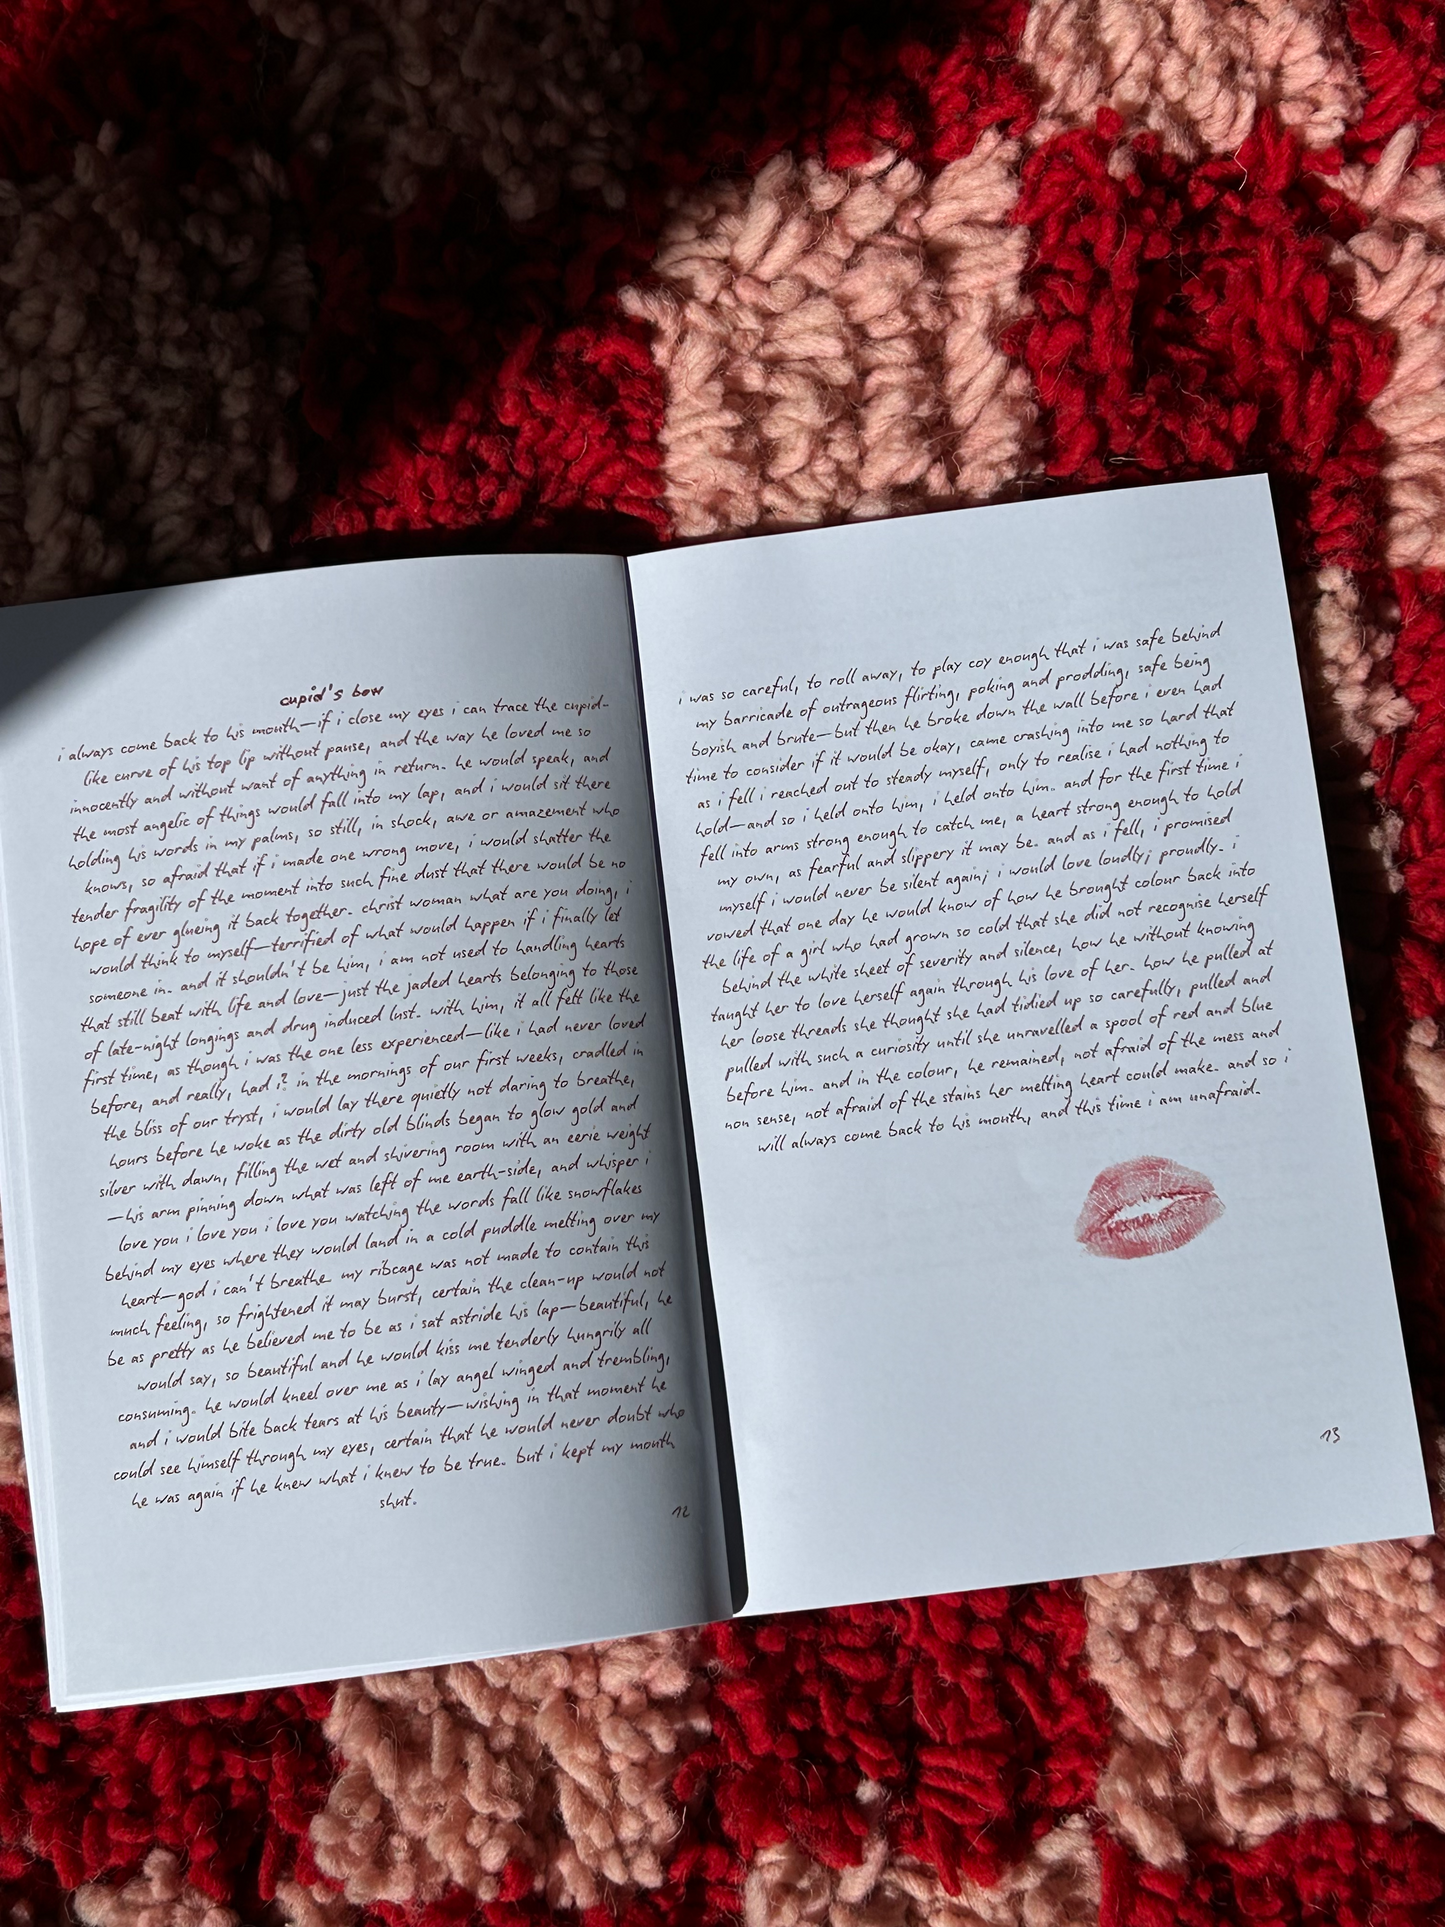 cupid's bow
i always come back to his mouth—if i close my eyes i can trace the cupid-
like curve of his top lip without pause, and the way he loved me so
innocently and without want of anything in return. he would speak, and
the most angelic of things would fall into my lap, and i would sit there
holding his words in my palms, so still, in shock, awe or amazement who
knows, so afraid that if i made one wrong move, i would shatter the
tender fragility of the moment into such fine dust that there would be no
hope of ever glueing it back together. christ woman what are you doing, i
would think to myself—terrified of what would happen if i finally let
someone in. and it shouldn't be him, i am not used to handling hearts
that still beat with life and love—just the jaded hearts belonging to those
of late-night longings and drug induced lust. with him, it all felt like the
first time, as though i was the one less experienced—like i had never loved
before, and really, had i? in the mornings of our first weeks, cradled in
the bliss of our tryst, i would lay there quietly not daring to breathe,
hours before he woke as the dirty old blinds began to glow gold and
silver with dawn, filling the wet and shivering room with an eerie weight
—his arm pinning down what was left of me earth-side, and whisper i
love you i love you i love you watching the words fall like snowflakes
behind my eyes where they would land in a cold puddle melting over my
heart—god i can't breathe. my ribcage was not made to contain this
much feeling, so frightened it may burst, certain the clean-up would not
be as pretty as he believed me to be as i sat astride his lap—beautiful, he
would say, so beautiful and he would kiss me tenderly hungrily all
consuming. he would kneel over me as i lay angel winged and trembling,
and i would bite back tears at his beauty—wishing in that moment he
could see himself through my eyes, certain that he would never doubt who
he was again if he knew what i knew to be true. but i kept my mouth
shut.
12
i was so careful, to roll away, to play coy enough that i was safe behind
my barricade of outrageous flirting, poking and prodding, safe being
boyish and brute—but then he broke down the wall before i even had
time to consider if it would be okay, came crashing into me so hard that
as i fell i reached out to steady myself, only to realise i had nothing to
hold—and so i held onto him, i held onto him. and for the first time i
fell into arms strong enough to catch me, a heart strong enough to hold
my own, as fearful and slippery it may be. and as i fell, i promised
myself i would never be silent again; i would love loudly; proudly. i
vowed that one day he would know of how he brought colour back into
the life of a girl who had grown so cold that she did not recognise herself
behind the white sheet of severity and silence, how he without knowing
taught her to love herself again through his love of her. how he pulled at
her loose threads she thought she had tidied up so carefully, pulled and
pulled with such a curiosity until she unravelled a spool of red and blue
before him. and in the colour, he remained, not afraid of the mess and
non sense, not afraid of the stains her melting heart could make. and so i
will always come back to his mouth, and this time i am unafraid.
13